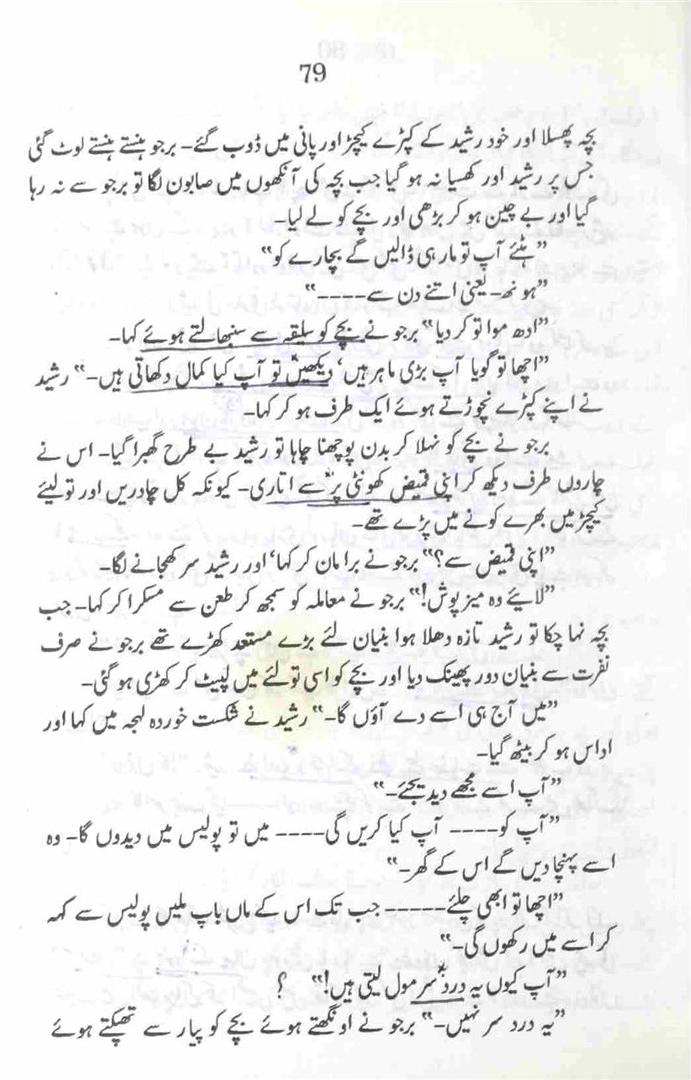 79
بچہ پھسلا اور خود رشید کے کپڑے کیچڑ اور پانی میں ڈوب گئے۔ برجو ہنستے ہنستے لوٹ گئی
جس پر رشید اور کھسیانہ ہو گیا جب بچہ کی آنکھوں میں صابون لگا تو برجو سے نہ رہا
گیا اور بے چین ہو کر بڑھی اور بچے کو لے لیا۔
”ہٹئے آپ تو مار ہی ڈالیں گے بچارے کو“
”ہونھ۔ یعنی اتنے دن سے۔۔۔۔“
”ادھ موا تو کر دیا“ برجو نے بچے کو سلیقہ سے سنبھالتے ہوئے کہا۔
”اچھا تو گویا آپ بڑی ماہر ہیں‘ دیکھیں تو آپ کیا کمال دکھاتی ہیں۔“ رشید
نے اپنے کپڑے نچوڑتے ہوئے ایک طرف ہو کر کہا۔
برجو نے بچے کو نہلا کر بدن پوچھنا چاہا تو رشید بے طرح گھبرا گیا۔ اس نے
چاروں طرف دیکھ کر اپنی قمیض کھونٹی پر سے اتاری۔ کیونکہ کل چادریں اور تولیئے
کیچڑ میں بھرے کونے میں پڑے تھے۔
”اپنی قمیض سے؟“ برجو نے برا مان کر کہا‘ اور رشید سر کھجانے لگا۔
”لائیے وہ میز پوش!“ برجو نے معاملہ کو سمجھ کر طعن سے مسکرا کر کہا۔ جب
بچہ نہا چکا تو رشید تازہ دھلا ہوا بنیان لئے بڑے مستعد کھڑے تھے برجو نے صرف
نفرت سے بنیان دور پھینک دیا اور بچے کو اسی تولئے میں لپیٹ کر کھڑی ہو گئی۔
”میں آج ہی اسے دے آؤں گا۔“ رشید نے شکست خوردہ لہجہ میں کہا اور
اداس ہو کر بیٹھ گیا۔
”آپ اسے مجھے دیدیجئے۔“
”آپ کو۔۔۔۔ آپ کیا کریں گی۔۔۔۔ میں تو پولیس میں دیدوں گا۔ وہ
اسے پہنچا دیں گے اس کے گھر۔“
”اچھا تو ابھی چلئے۔۔۔۔۔ جب تک اس کے ماں باپ ملیں پولیس سے کہہ
کر اسے میں رکھوں گی۔“
”آپ کیوں یہ درد سر مول لیتی ہیں!“ ؟
”یہ درد سر نہیں۔“ برجو نے اونگھتے ہوئے بچے کو پیار سے تھپکتے ہوئے